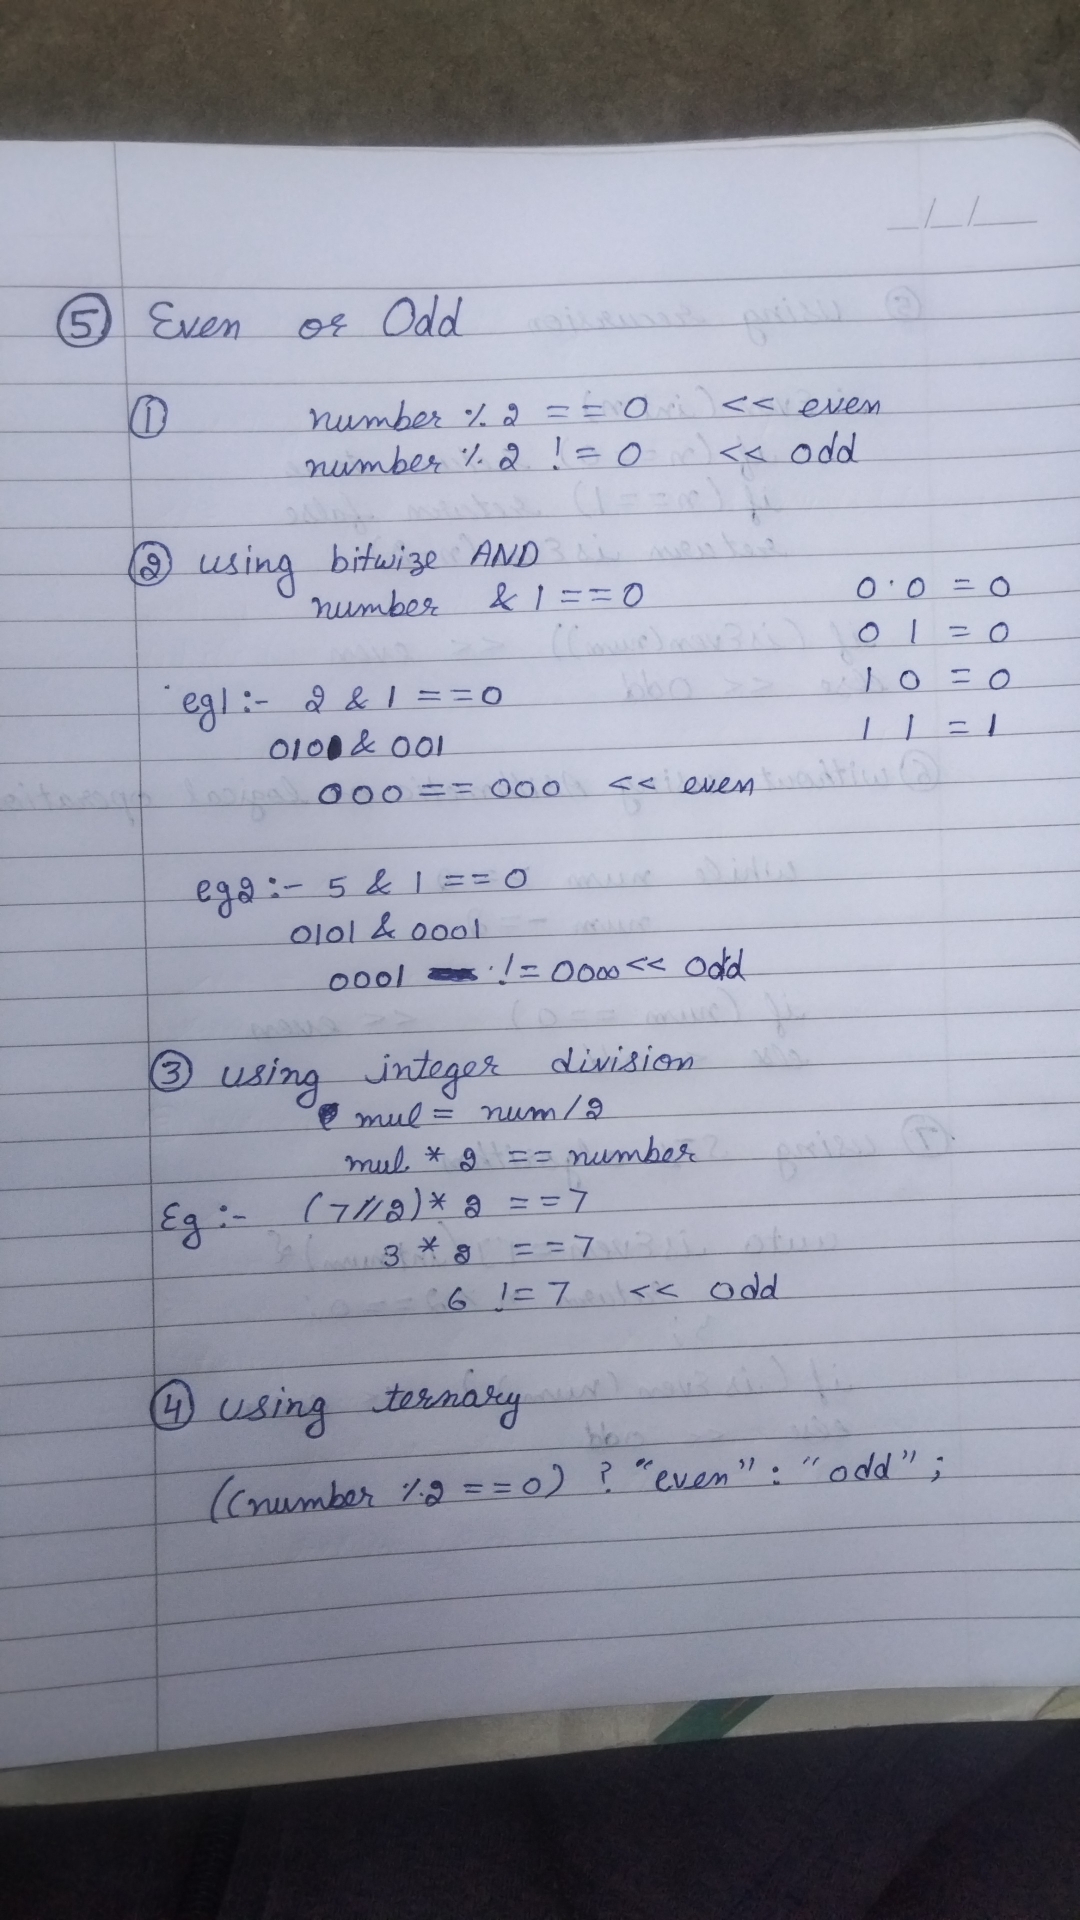 5 Even or Odd
1 number % 2 == 0 << even
number % 2 != 0 << odd
2 using bitwize AND
number & 1 == 0 0 · 0 = 0
0 1 = 0
eg1 :- 2 & 1 == 0 1 0 = 0
010 & 001 1 1 = 1
000 == 000 << even
eg2 :- 5 & 1 == 0
0101 & 0001
0001 != 0000 << Odd
3 using integer division
mul = num / 2
mul * 2 == number
Eg :- (7//2) * 2 == 7
3 * 2 == 7
6 != 7 << odd
4 using ternary
((number % 2 == 0) ? "even" : "odd" ;